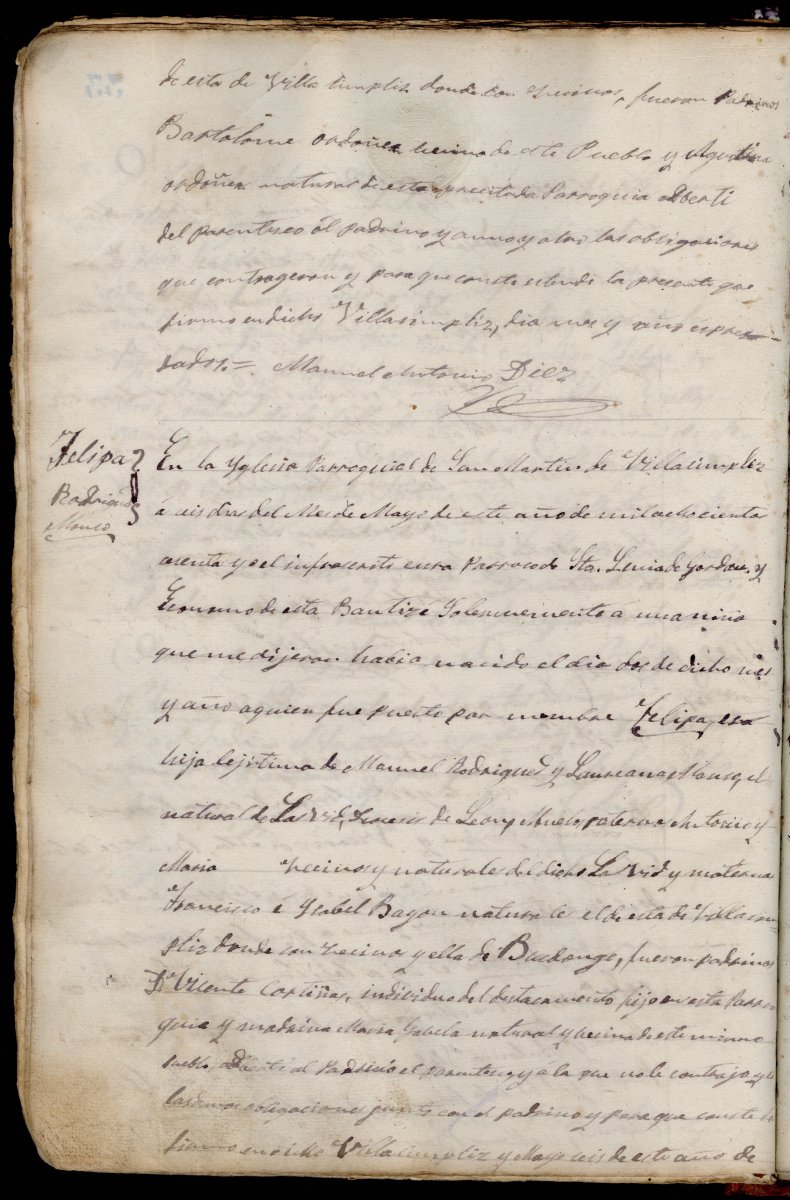 de esta de Villasimpliz donde son Vecinos, fueron Padrinos
Bartolome Ordoñez vecino de este Pueblo y Agustina
ordoñez natural de esta precitada Parroquia adberti
del Parentesco al padrino y a uno y otro las obligaciones
que contrageron y para que conste estiendo la presente que
firmo en dicho Villasimpliz, dia mes y año espre
sados.= Manuel Antonio Diez
Felipa
Rodriguez
Alonso
En la Yglesia Parroquial de San Martin de Villasimpliz
á seis dias del Mes de Mayo de este año de mil ochocientos
sesenta yo el infrascrito cura Parroco de Sta. Lucia de Gordon y
Economo de esta Bautize Solemnemente a una niña
que me dijeron habia nacido el dia dos de dicho mes
y año a quien fue puesto por nombre Felipa, es
hija lejitima de Manuel Rodriguez y Laureana Alonso, el
natural de La Vid, de Leon, Abuelos paternos Antonio y
Maria Vecinos y naturales del dicho La Vid y maternos
Francisco é Ysabel Bayon naturales el de esta de Villasim
pliz donde son Vecinos y ella de Busdongo, fueron padrinos
Dn. Vicente Cortiñas, individuo del destacamento fijo en esta Parro
quia y madrina Maria natural y vecina de este mismo
pueblo, adberti al Padrino el parentesco y a la que no le contrajo, y
las demas obligaciones junto con el padrino y para que conste lo
firmo en dicho Villasimpliz y Mayo seis de este año de